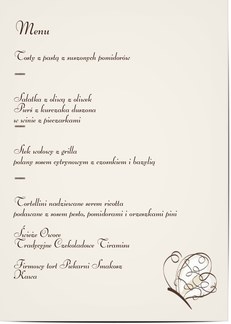 Menu
Tosty z pastą z suszonych pomidorów
Sałatka z oliwą z oliwek
Pierś z kurczaka duszona
w winie z pieczarkami
Stek wołowy z grilla
polany sosem cytrynowym z czosnkiem i bazylią
Tortellini nadziewane serem ricotta
podawane z sosem pesto, pomidorami i orzeszkami pini
Świeże Owoce
Tradycyjne Czekoladowe Tiramisu
Firmowy tort Piekarni Smakosz
Kawa